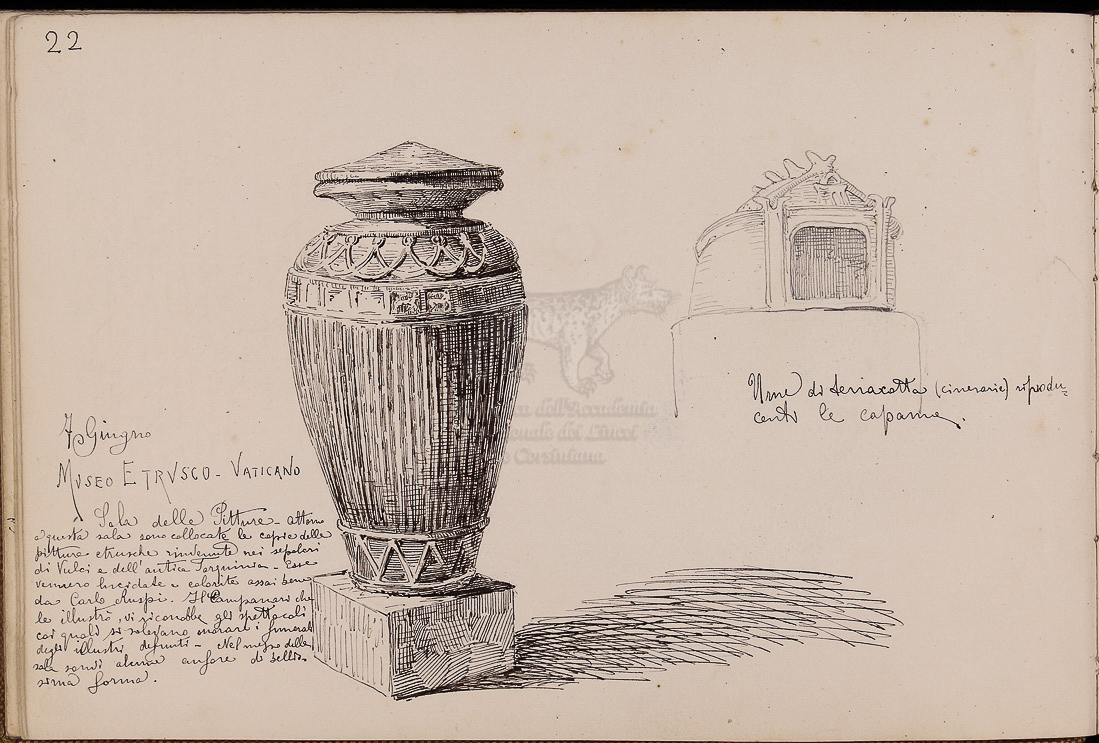 22
7 Giugno
MVSEO ETRVSCO - VATICANO
Sala delle Pitture - attorno
a questa sala sono collocate le copie delle
pitture etrusche rinvenute nei sepolcri
di Vulci e dell'antica Tarquinia - Esse
vennero lucidate e colorite assai bene
da Carlo Ruspi. Il Campanari che
le illustrò, vi riconobbe gli spettacoli
coi quali si solevano onorare i funerali
degli illustri defunti - Nel mezzo della
sala sonvi alcune anfore di bellis-
sima forma.
Urne di terracotta (cinerarie) riprodu-
centi le capanne.
dell'Accademia
Nazionale dei Lincei
e Corsiniana